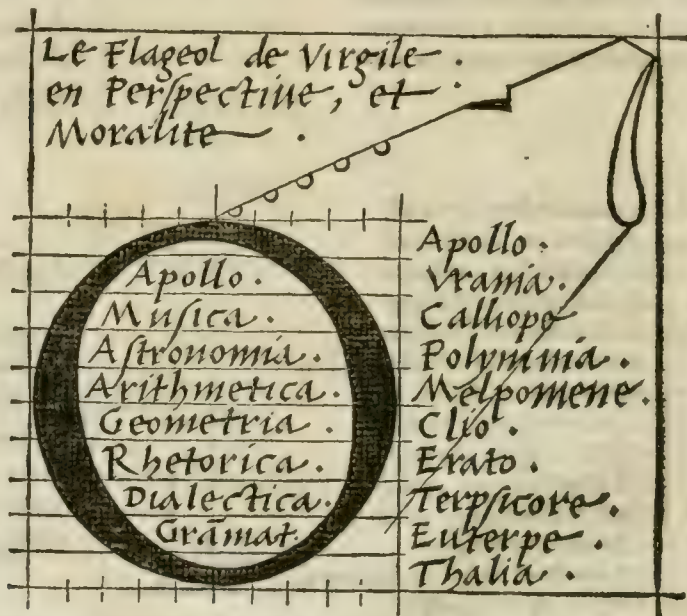 Le Flageol de Virgile.
en Perſpectiue, et
Moralite.
O
Apollo.
Muſica.
Aſtronomia.
Arithmetica.
Geometria.
Rhetorica.
Dialectica.
Grãmat.
Apollo.
Vrania.
Calliope
Polymnia.
Melpomene.
Clio.
Erato.
Terpſicore.
Euterpe.
Thalia.